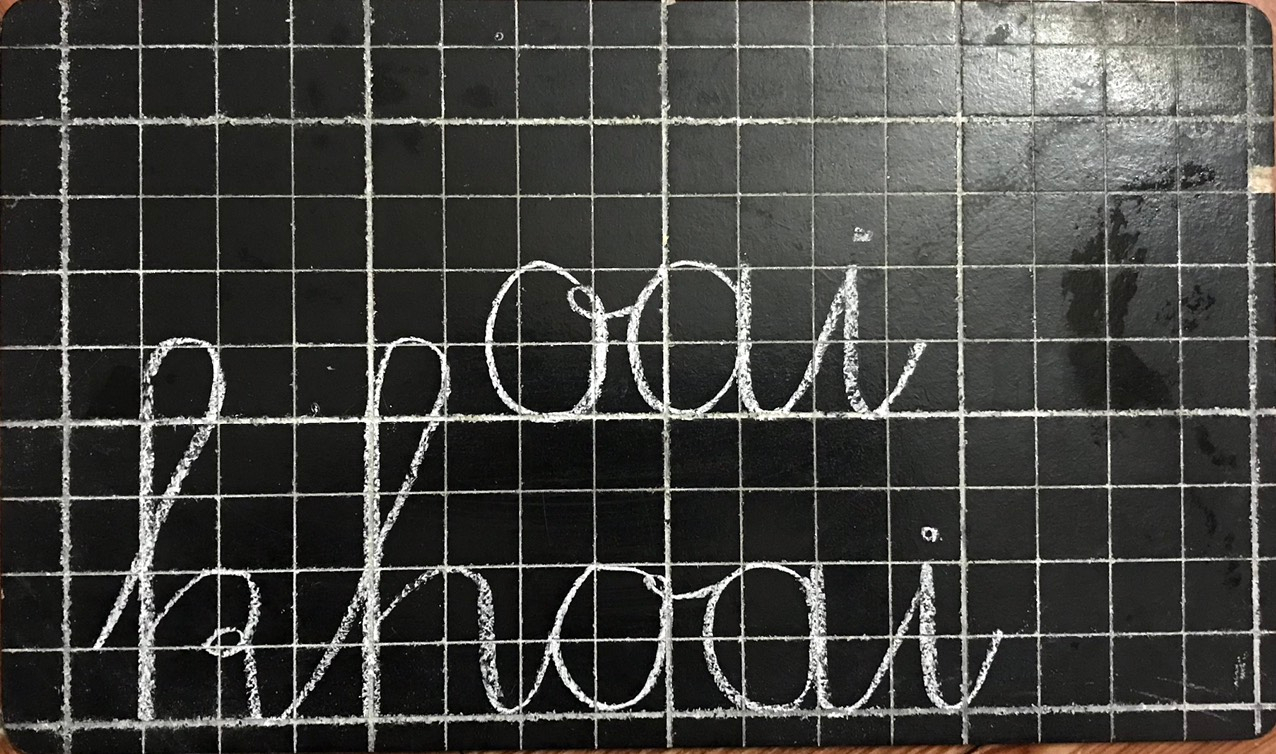 oai
khoai